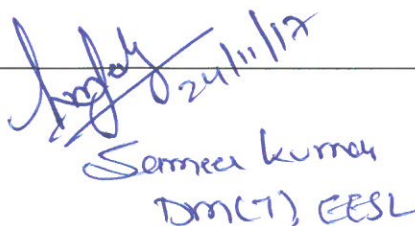 24/11/17
Sameer Kumar
DM(T), EESL